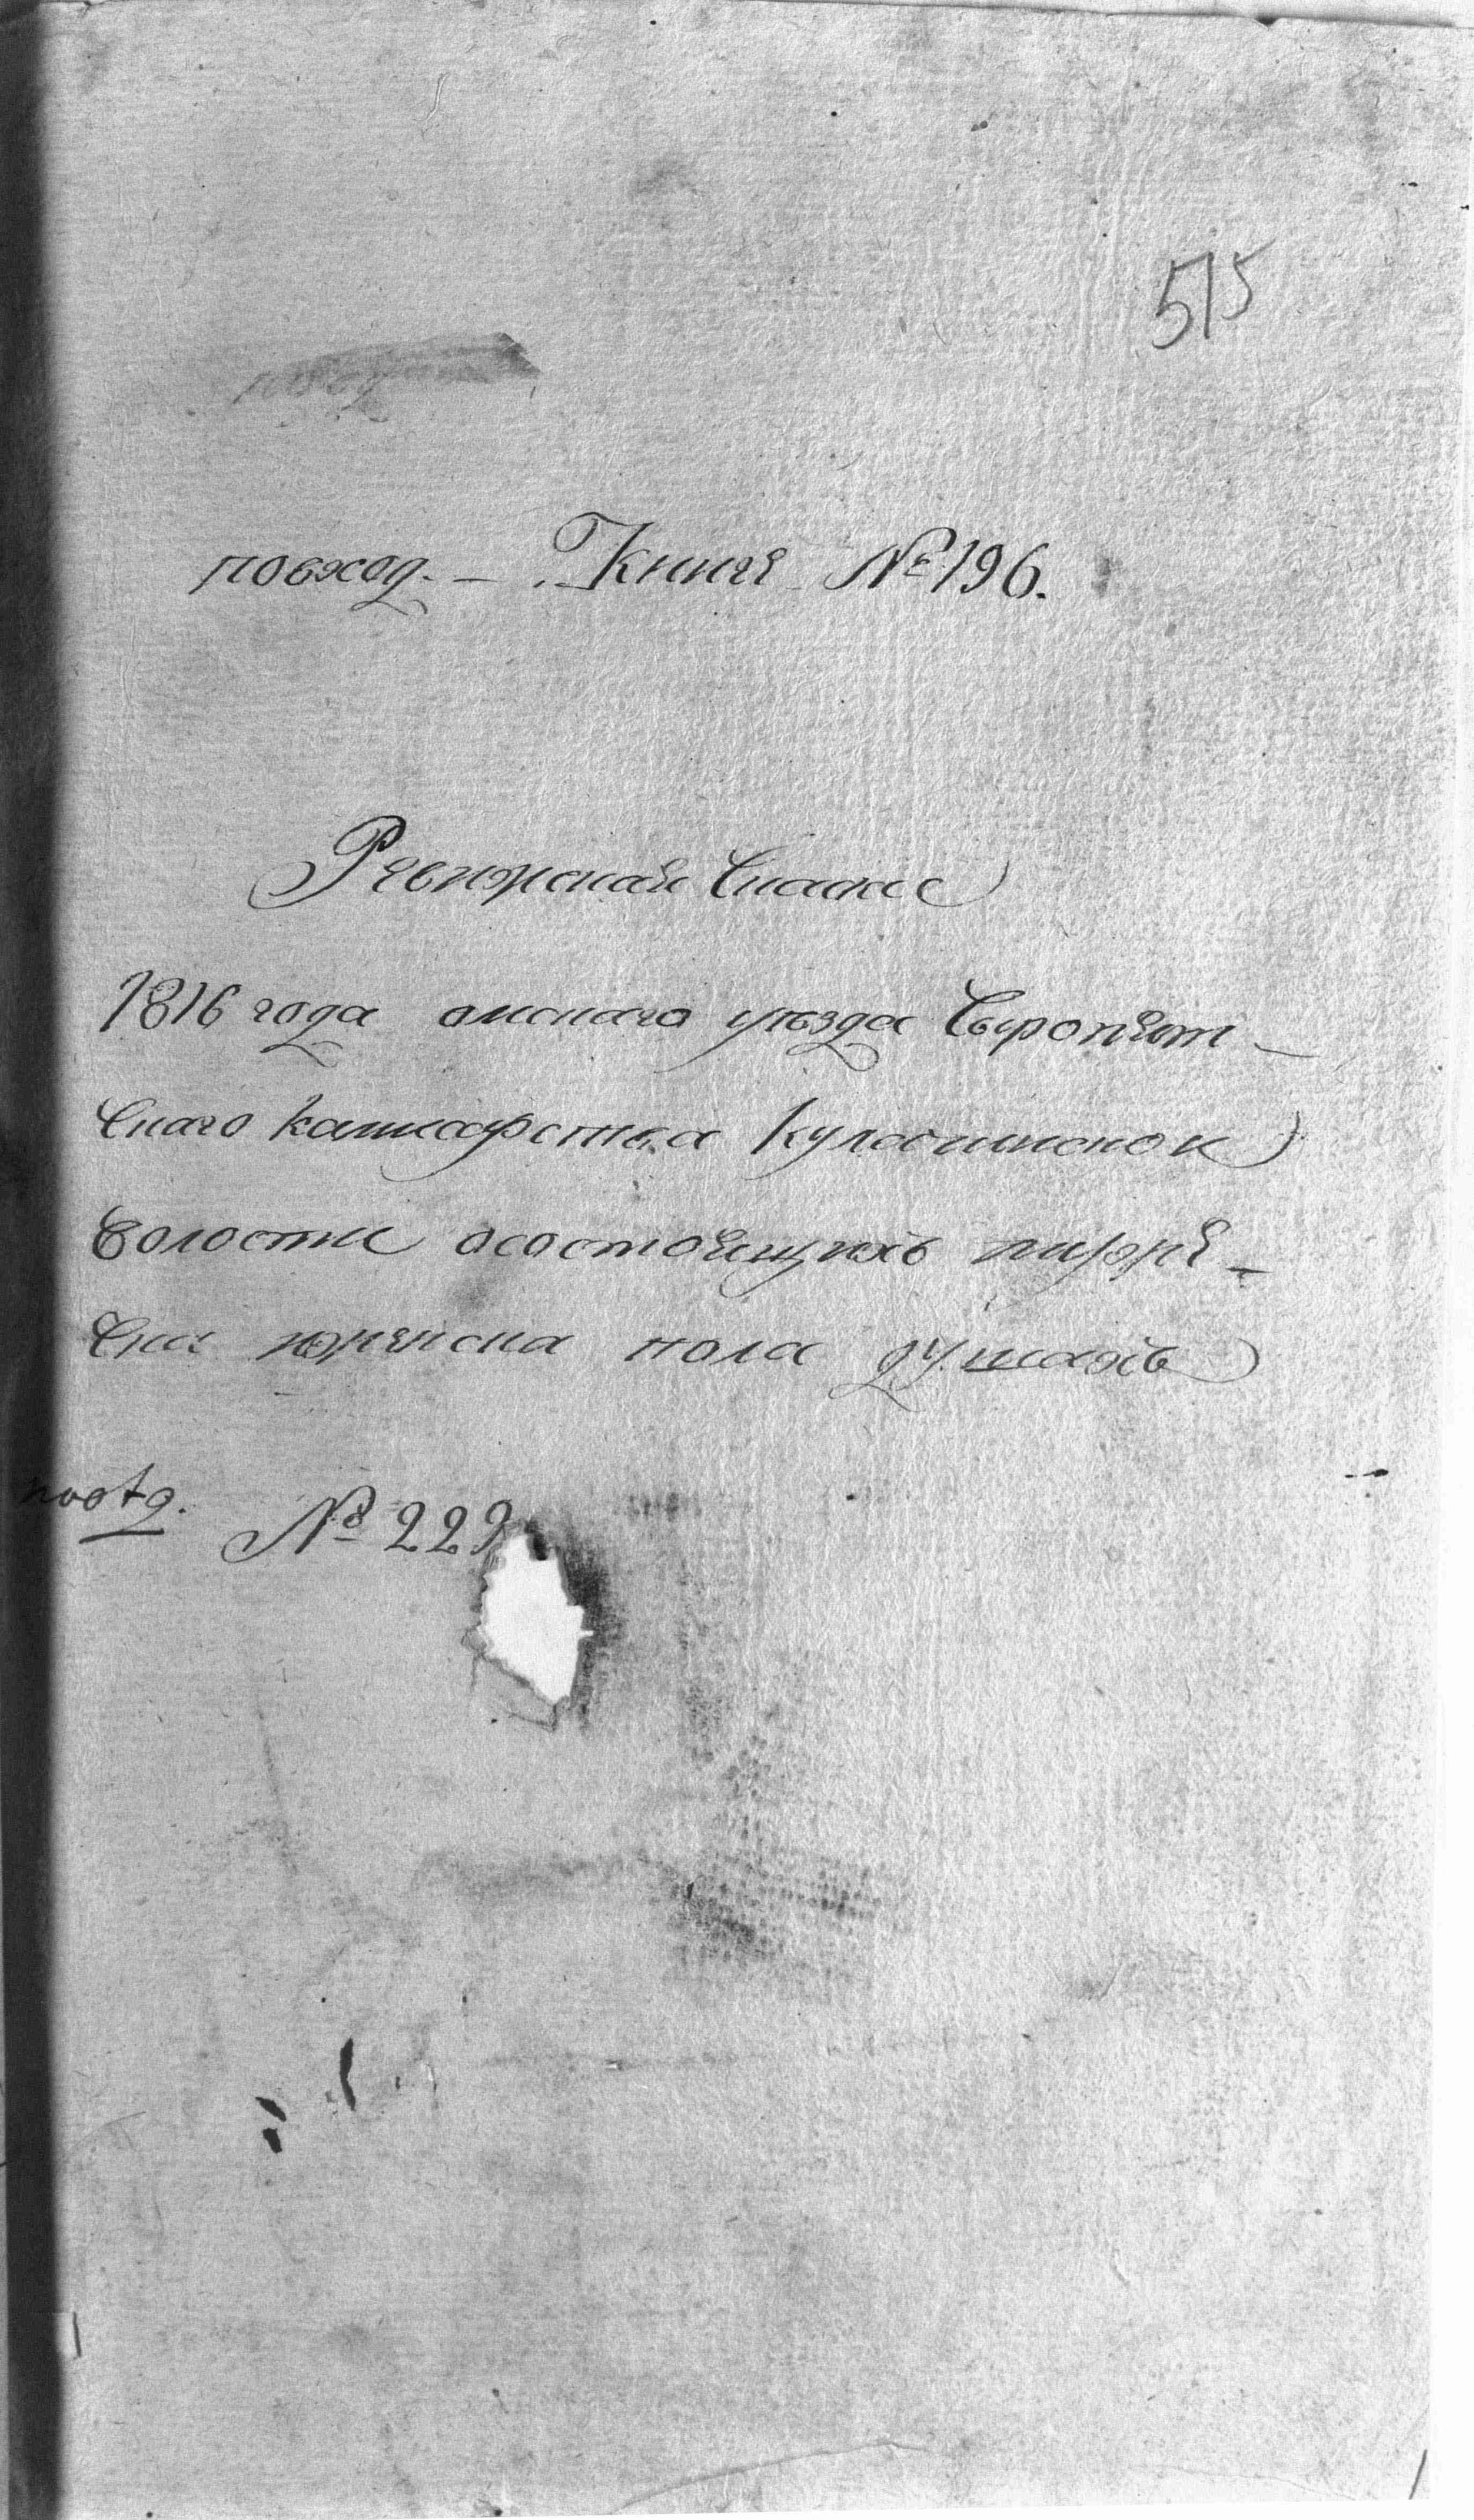 515
по вход. — Книга № 196.
Ревижская Сказка
1816 года омскаго уѣзда Сыропят-
Скаго камисарства Кулачинской
Волости осостоящихъ
женска пола душахъ
по отд. № 229